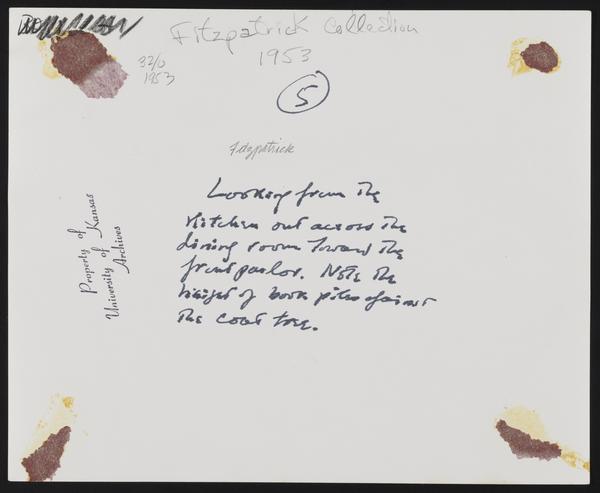 Fitzpatrick Collection
1953
32/0
1953
5
Fitzpatrick
Looking from the
kitchen out across the
dining room toward the
front parlor. Note the
height of book piles against
the coat tree.
Property of
University of Kansas
Archives